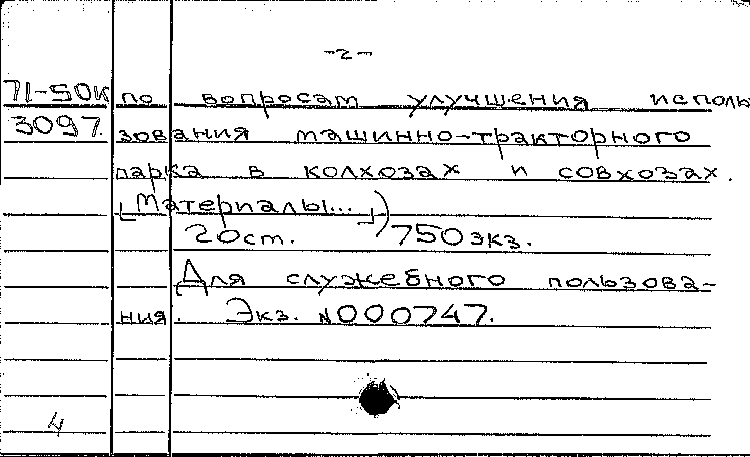 -2-
71-50к по вопросам улучшения исполь
3097. зования машинно-тракторного
парка в колхозах и совхозах.
[Материалы...])
20 ст. 750 экз.
Для служебного пользова-
ния. Экз. №000747.
4